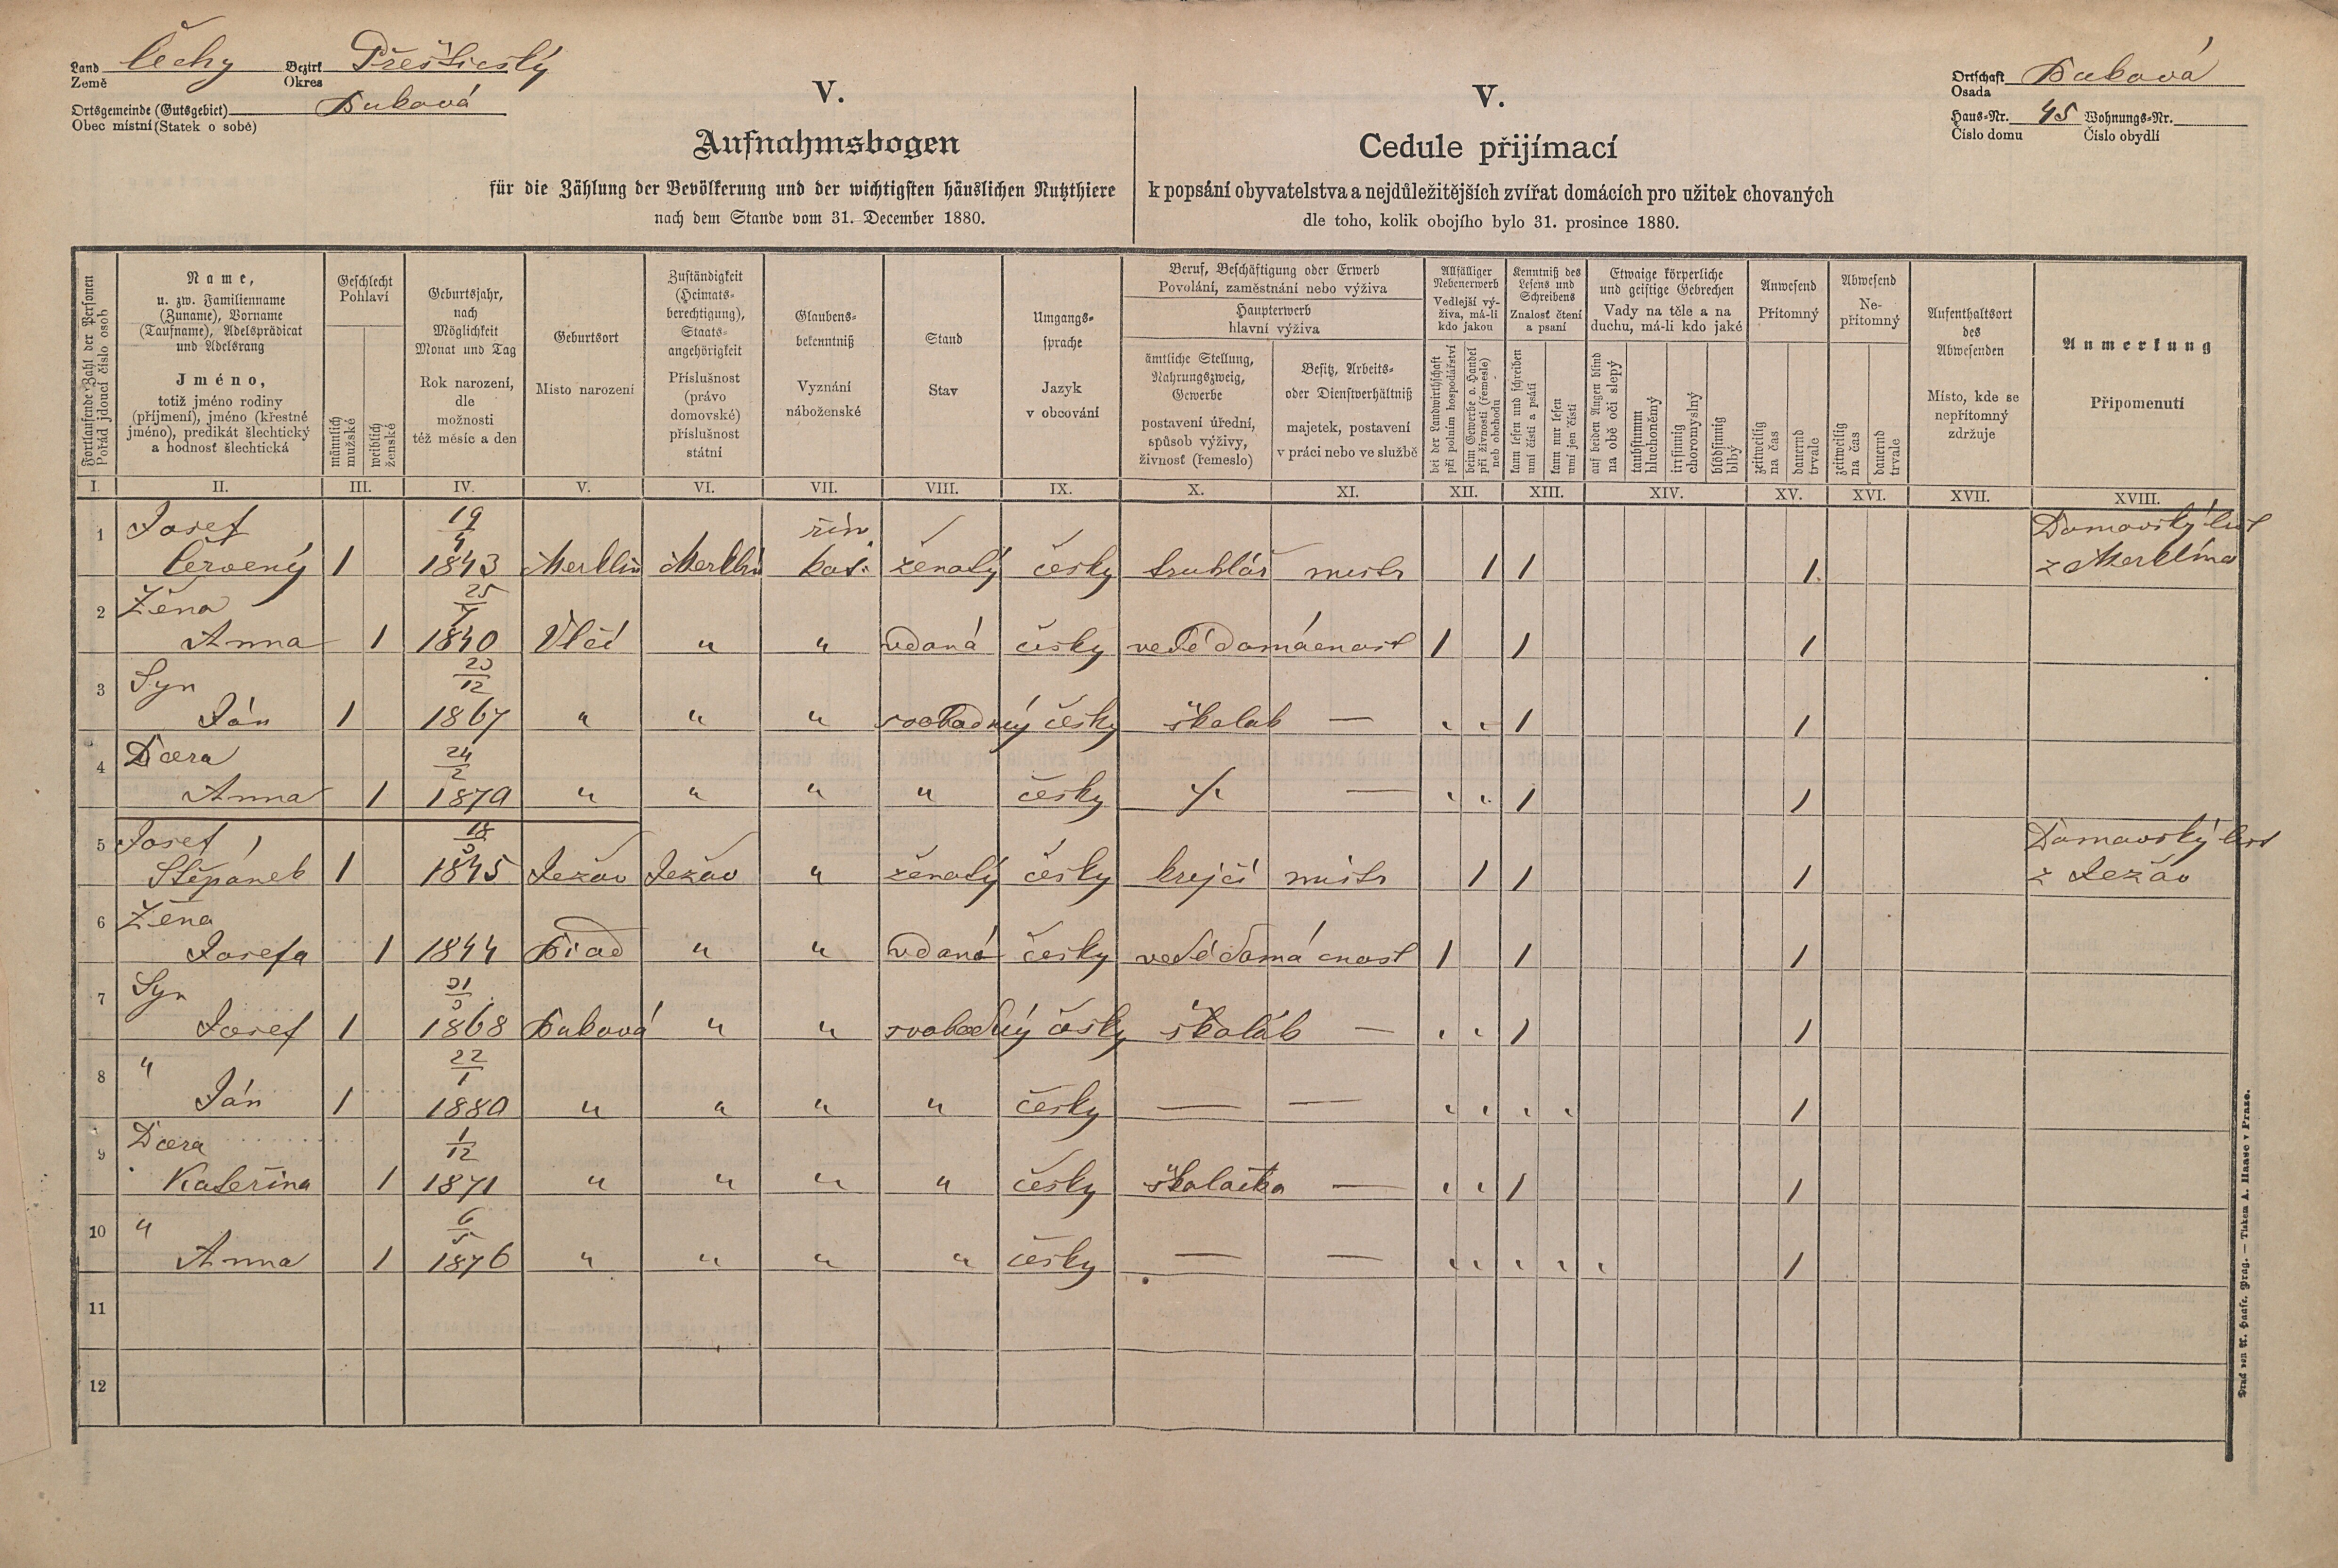 Land Čechy Bezirk Přeštický
Země Okres
Ortsgemeinde (Gutsgebiet) Buková
Obec místní (Statek o sobě)
Ortschaft Buková
Osada
Haus-Nr. 45 Wohnungs-Nr.
Číslo domu Číslo obydlí
V.
Aufnahmsbogen
für die Zählung der Bevölkerung und der wichtigsten häuslichen Nutzthiere
nach dem Stande vom 31. December 1880.
V.
Cedule přijímací
k popsání obyvatelstva a nejdůležitějších zvířat domácích pro užitek chovaných
dle toho, kolik obojího bylo 31. prosince 1880.
Fortlaufende Zahl der Personen
Pořád jdoucí číslo osob
Name,
u. zw. Familienname
(Zuname), Vorname
(Taufname), Adelsprädicat
und Adelsrang
Jméno,
totiž jméno rodiny
(příjmení), jméno (křestné
jméno), predikát šlechtický
a hodnosť šlechtická
Geschlecht
Pohlaví
männlich
mužské
weiblich
ženské
Geburtsjahr,
nach
Möglichkeit
Monat und Tag
Rok narození,
dle
možnosti
též měsíc a den
Geburtsort
Místo narození
Zuständigkeit
(Heimats-
berechtigung),
Staats-
angehörigkeit
Příslušnost
(právo
domovské)
příslušnost
státní
Glaubens-
bekenntniß
Vyznání
náboženské
Stand
Stav
Umgangs-
sprache
Jazyk
v obcování
Beruf, Beschäftigung oder Erwerb
Povolání, zaměstnání nebo výživa
Haupterwerb
hlavní výživa
ämtliche Stellung,
Nahrungszweig,
Gewerbe
postavení úřední,
spůsob výživy,
živnosť (řemeslo)
Besitz, Arbeits-
oder Dienstverhältniß
majetek, postavení
v práci nebo ve službě
Allfälliger
Nebenerwerb
Vedlejší vý-
živa, má-li
kdo jakou
bei der Landwirthschaft
při polním hospodářství
beim Gewerbe o. Handel
při živnosti (řemesle)
neb obchodu
Kenntniß des
Lesens und
Schreibens
Znalosť čtení
a psaní
kann lesen und schreiben
umí čísti a psáti
kann nur lesen
umí jen čísti
Etwaige körperliche
und geistige Gebrechen
Vady na těle a na
duchu, má-li kdo jaké
auf beiden Augen blind
na obě oči slepý
taubstumm
hluchoněmý
irrsinnig
choromyslný
blödsinnig
blbý
Anwesend
Přítomný
zeitweilig
na čas
dauernd
trvale
Abwesend
Ne-
přítomný
zeitweilig
na čas
dauernd
trvale
Aufenthaltsort
des
Abwesenden
Místo, kde se
nepřítomný
zdržuje
Anmerkung
Připomenutí
I. II. III. IV. V. VI. VII. VIII. IX. X. XI. XII. XIII. XIV. XV. XVI. XVII. XVIII.
1 Josef 19/4 řím. Domovský list
Červený 1 1843 Merklín Merklín kat. ženatý česky truhlář mistr 1 1 1 z Merklína
2 Žena 25/7
Anna 1 1840 Vlčí " " vdaná česky vede domácnost 1 1 1
3 Syn 23/12
Ján 1 1867 " " " svobodný česky školák — 1 1
4 Dcera 24/2
Anna 1 1870 " " " " česky — 1 1
5 Josef 18/3 Domovský list
Štěpánek 1 1845 Ježov Ježov " ženatý česky krejčí mistr 1 1 1 z Ježov
6 Žena
Josefa 1 1844 " " vdaná česky vede domácnost 1 1 1
7 Syn 31/3
Josef 1 1868 Buková " " svobodný česky školák — 1 1
8 " 22/1
Ján 1 1880 " " " " česky — — 1
9 Dcera 1/12
Kateřina 1 1871 " " " " česky školačka — 1 1
10 " 6/5
Anna 1 1876 " " " " česky — — 1
11
12
Druck von A. Haase, Prag. — Tiskem A. Haase v Praze.